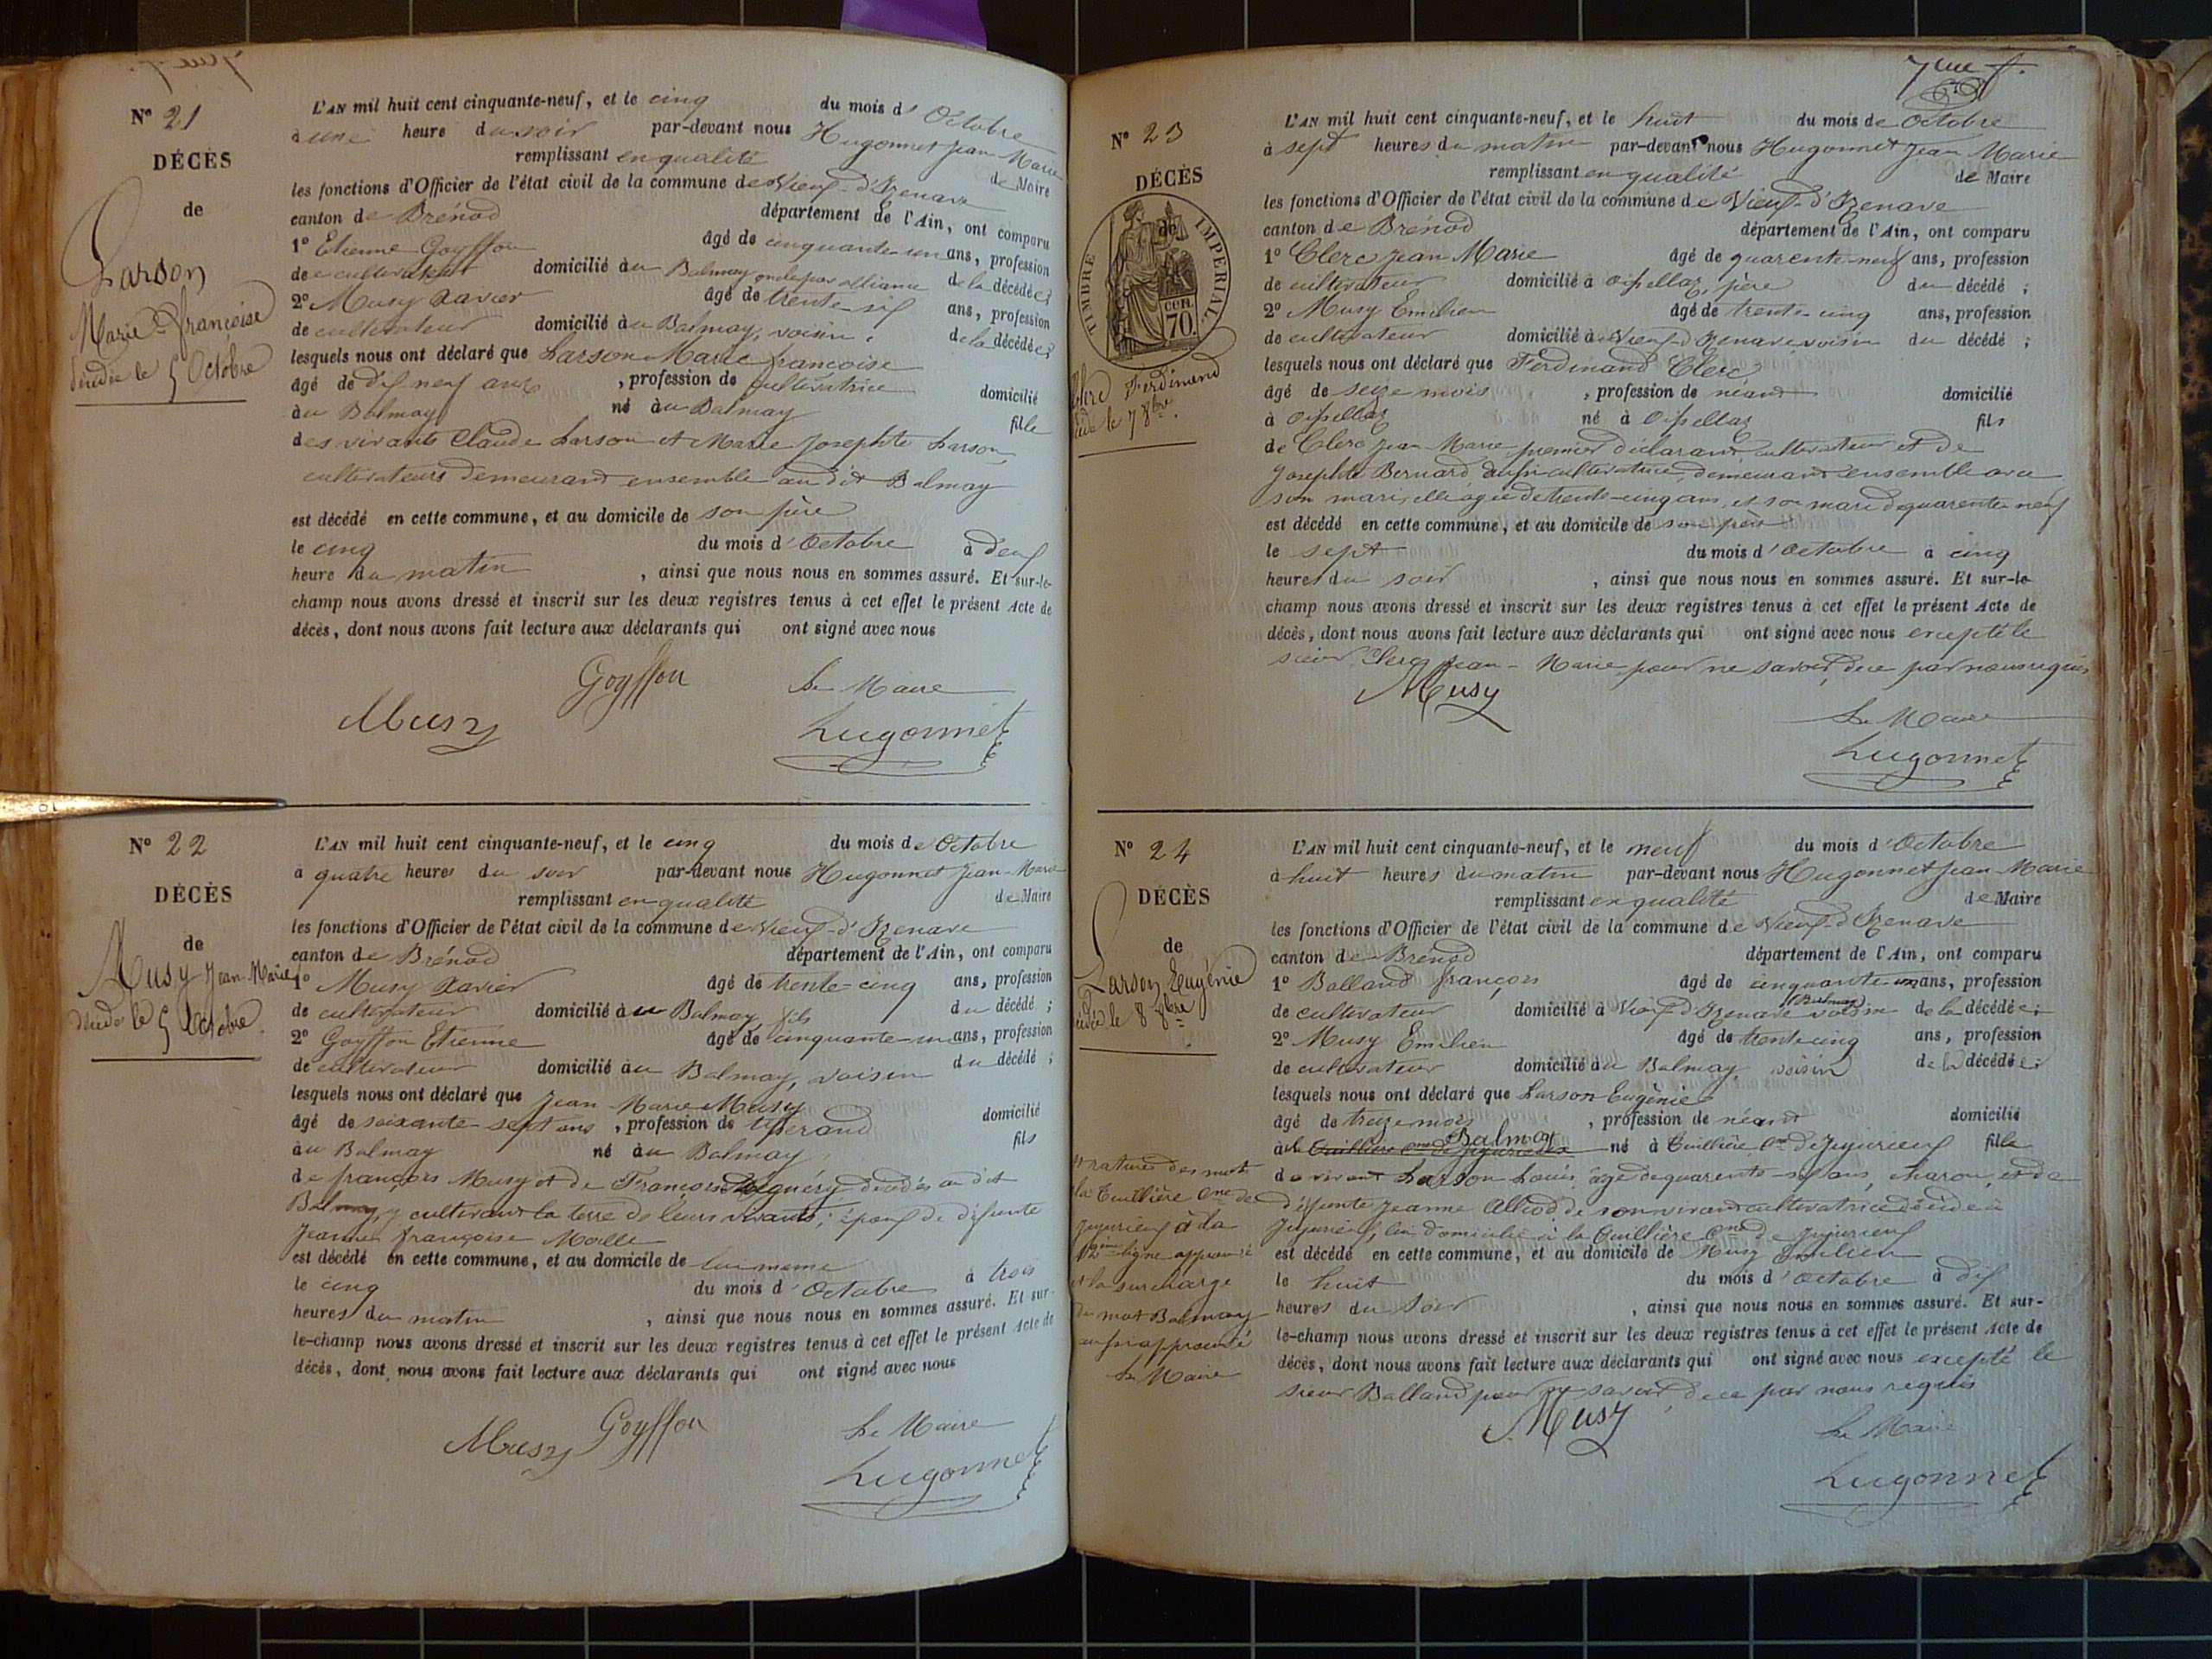 N° 21
DÉCÈS
de
Larson
Marie-Françoise
décédée le 5 Octobre
L'AN mil huit cent cinquante-neuf, et le cinq du mois d'Octobre
à une heure du soir par-devant nous Hugonnet Jean Marie
remplissant en qualité de Maire
les fonctions d'Officier de l'état civil de la commune de Vieux-d'Izenave
canton de Brénod département de l'Ain, ont comparu
1° Etienne Goyffon âgé de cinquante-un ans, profession
de cultivateur domicilié au Balmay oncle par alliance de la décédée;
2° Musy Xavier âgé de trente-six ans, profession
de cultivateur domicilié au Balmay, voisin, de la décédée;
lesquels nous ont déclaré que Larson Marie françoise
âgé de dix neuf ans , profession de cultivatrice domicilié
au Balmay né au Balmay fille
des vivants Claude Larson et Marie Josephte Larson,
cultivateurs demeurant ensemble au dit Balmay
est décédé en cette commune, et au domicile de son père
le cinq du mois d'Octobre à deux
heure du matin , ainsi que nous nous en sommes assuré. Et sur-le-
champ nous avons dressé et inscrit sur les deux registres tenus à cet effet le présent Acte de
décès, dont nous avons fait lecture aux déclarants qui ont signé avec nous
Goyffon Le Maire
Musy Hugonnet
N° 22
DÉCÈS
de
Musy Jean-Marie
décédé le 5 Octobre
L'AN mil huit cent cinquante-neuf, et le cinq du mois de Octobre
à quatre heures du soir par-devant nous Hugonnet Jean-Marie
remplissant en qualité de Maire
les fonctions d'Officier de l'état civil de la commune de Vieux-d'Izenave
canton de Brénod département de l'Ain, ont comparu
1° Musy Xavier âgé de trente-cinq ans, profession
de cultivateur domicilié au Balmay fils du décédé;
2° Goyffon Etienne âgé de cinquante-un ans, profession
de cultivateur domicilié au Balmay, voisin du décédé;
lesquels nous ont déclaré que Jean Marie Musy
âgé de soixante-sept ans , profession de tisserand domicilié
au Balmay né au Balmay fils
de françois Musy et de Françoise décédés au dit
Balmay, cultivant la terre de leurs vivants; époux de défunte
Jeanne françoise Molle
est décédé en cette commune, et au domicile de lui même
le cinq du mois d'Octobre à trois
heures du matin , ainsi que nous nous en sommes assuré. Et sur-
le-champ nous avons dressé et inscrit sur les deux registres tenus à cet effet le présent Acte de
décès, dont nous avons fait lecture aux déclarants qui ont signé avec nous
Musy Goyffon Le Maire
Hugonnet
7me f.
N° 23
DÉCÈS
de
TIMBRE IMPERIAL
CEN.
70.
Clerc Ferdinand
décédé le 7 8bre.
L'AN mil huit cent cinquante-neuf, et le huit du mois de Octobre
à sept heures du matin par-devant nous Hugonnet Jean Marie
remplissant en qualité de Maire
les fonctions d'Officier de l'état civil de la commune de Vieux-d'Izenave
canton de Brénod département de l'Ain, ont comparu
1° Clerc Jean Marie âgé de quarente-neuf ans, profession
de cultivateur domicilié à Oisselaz, père du décédé;
2° Musy Emilien âgé de trente-cinq ans, profession
de cultivateur domicilié à Vieux-d'Izenave voisin du décédé;
lesquels nous ont déclaré que Ferdinand Clerc
âgé de seize mois , profession de néant domicilié
à Oissellaz né à Oissellaz fils
de Clerc Jean-Marie premier déclarant cultivateur et de
Josephte Bernard, aussi cultivatrice, demeurant ensemble avec
son mari, elle agée de trente-cinq ans, et son mari de quarente-neuf
est décédé en cette commune, et au domicile de son père
le sept du mois d'Octobre à cinq
heures du soir , ainsi que nous nous en sommes assuré. Et sur-le-
champ nous avons dressé et inscrit sur les deux registres tenus à cet effet le présent Acte de
décès, dont nous avons fait lecture aux déclarants qui ont signé avec nous excepté le
sieur Clerc Jean-Marie pour ne savoir, de ce par nous requis
Musy
Le Maire
Hugonnet
N° 24
DÉCÈS
de
Larson Eugénie
décédée le 8 8bre.
L'AN mil huit cent cinquante-neuf, et le neuf du mois d'Octobre
à huit heures du matin par-devant nous Hugonnet Jean Marie
remplissant en qualité de Maire
les fonctions d'Officier de l'état civil de la commune de Vieux-d'Izenave
canton de Brénod département de l'Ain, ont comparu
1° Balland françois âgé de cinquante-un ans, profession
de cultivateur domicilié à Vieux d'Izenave Balmay voisin de la décédée;
2° Musy Emilien âgé de trente cinq ans, profession
de cultivateur domicilié au Balmay, voisin de la décédée;
lesquels nous ont déclaré que Larson Eugénie
âgé de treize mois , profession de néant domicilié
à la Tuillière Cne de Jujurieux Balmay né à Tuillière Cne de Jujurieux fille
de vivant Larson Louis, âgé de quarente-six ans, charon, et de
défunte Jeanne Alliod de son vivant cultivatrice décédée à
Jujurieux, lui domicilié à la Tuillière Cne de Jujurieux
est décédé en cette commune, et au domicile de Musy Emilien
le huit du mois d'Octobre à dix
heures du soir , ainsi que nous nous en sommes assuré. Et sur-
le-champ nous avons dressé et inscrit sur les deux registres tenus à cet effet le présent Acte de
décès, dont nous avons fait lecture aux déclarants qui ont signé avec nous excepté le
sieur Balland pour ne savoir, de ce par nous requis
Musy Le Maire
Hugonnet
et rature des mots
la Tuillière Cne de
Jujurieux à la
12ème ligne approuvé
et la surcharge
du mot Balmay
aussi approuvé
Le Maire